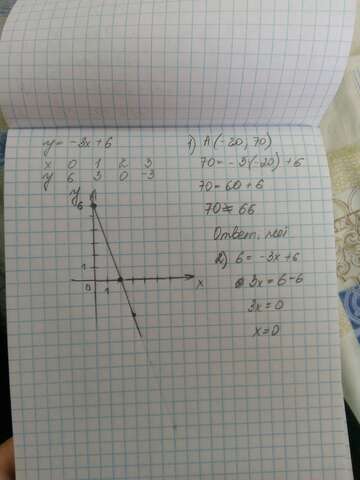 y = -3x+6
x 0 1 2 3
y 6 3 0 -3
y
6
1
0 1
x
1) A (-20; 70)
70 = -3·(-20) + 6
70 = 60 + 6
70 ≠ 66
Ответ: нет
2) 6 = -3x+6
3x = 6-6
3x = 0
x = 0